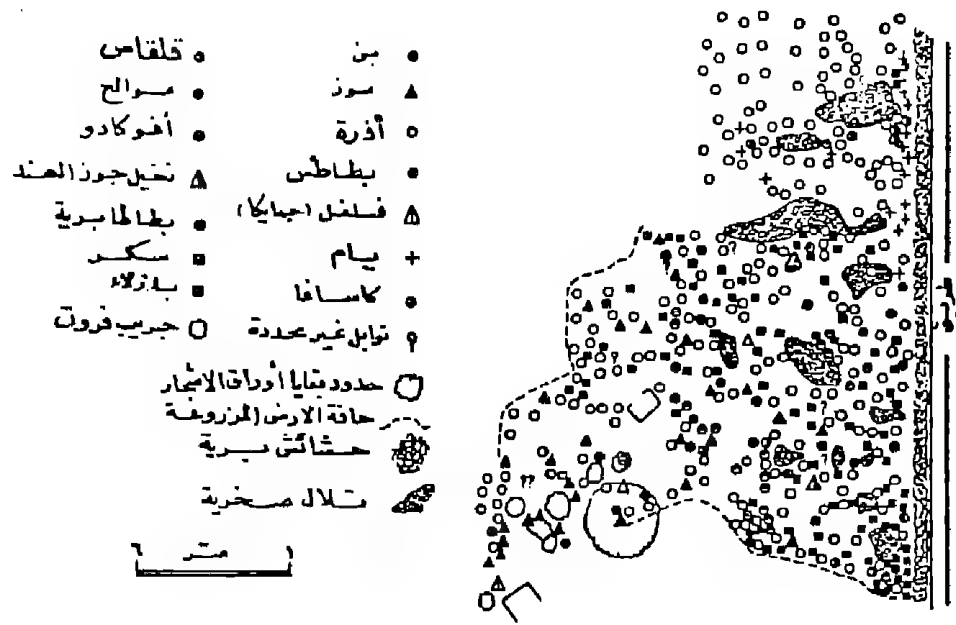 بن
موز
أذرة
بطاطس
فلفل (جمايكا)
يام
كاسافا
توابل غير محددة
قلقاس
موالح
أفوكادو
نخيل جوز الهند
بطاطا برية
سكر
بازلاء
جريب فروت
حدود بقايا أوراق الاشجار
حافة الارض المزروعة
حشائش برية
تلال صخرية
٦ متر ١
? ? ? ? ??